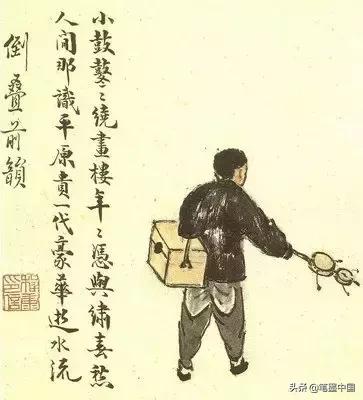 小鼓鼕〻繞畫樓年〻憑與繡春愁
人間那識平原貴一代豪華逝水流
倒疊前韻
头条 @笔墨中国